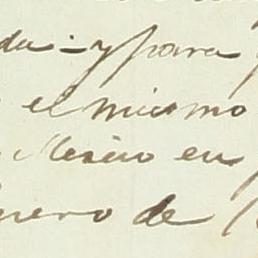 da = y para
el mismo
Mexico en
nero de